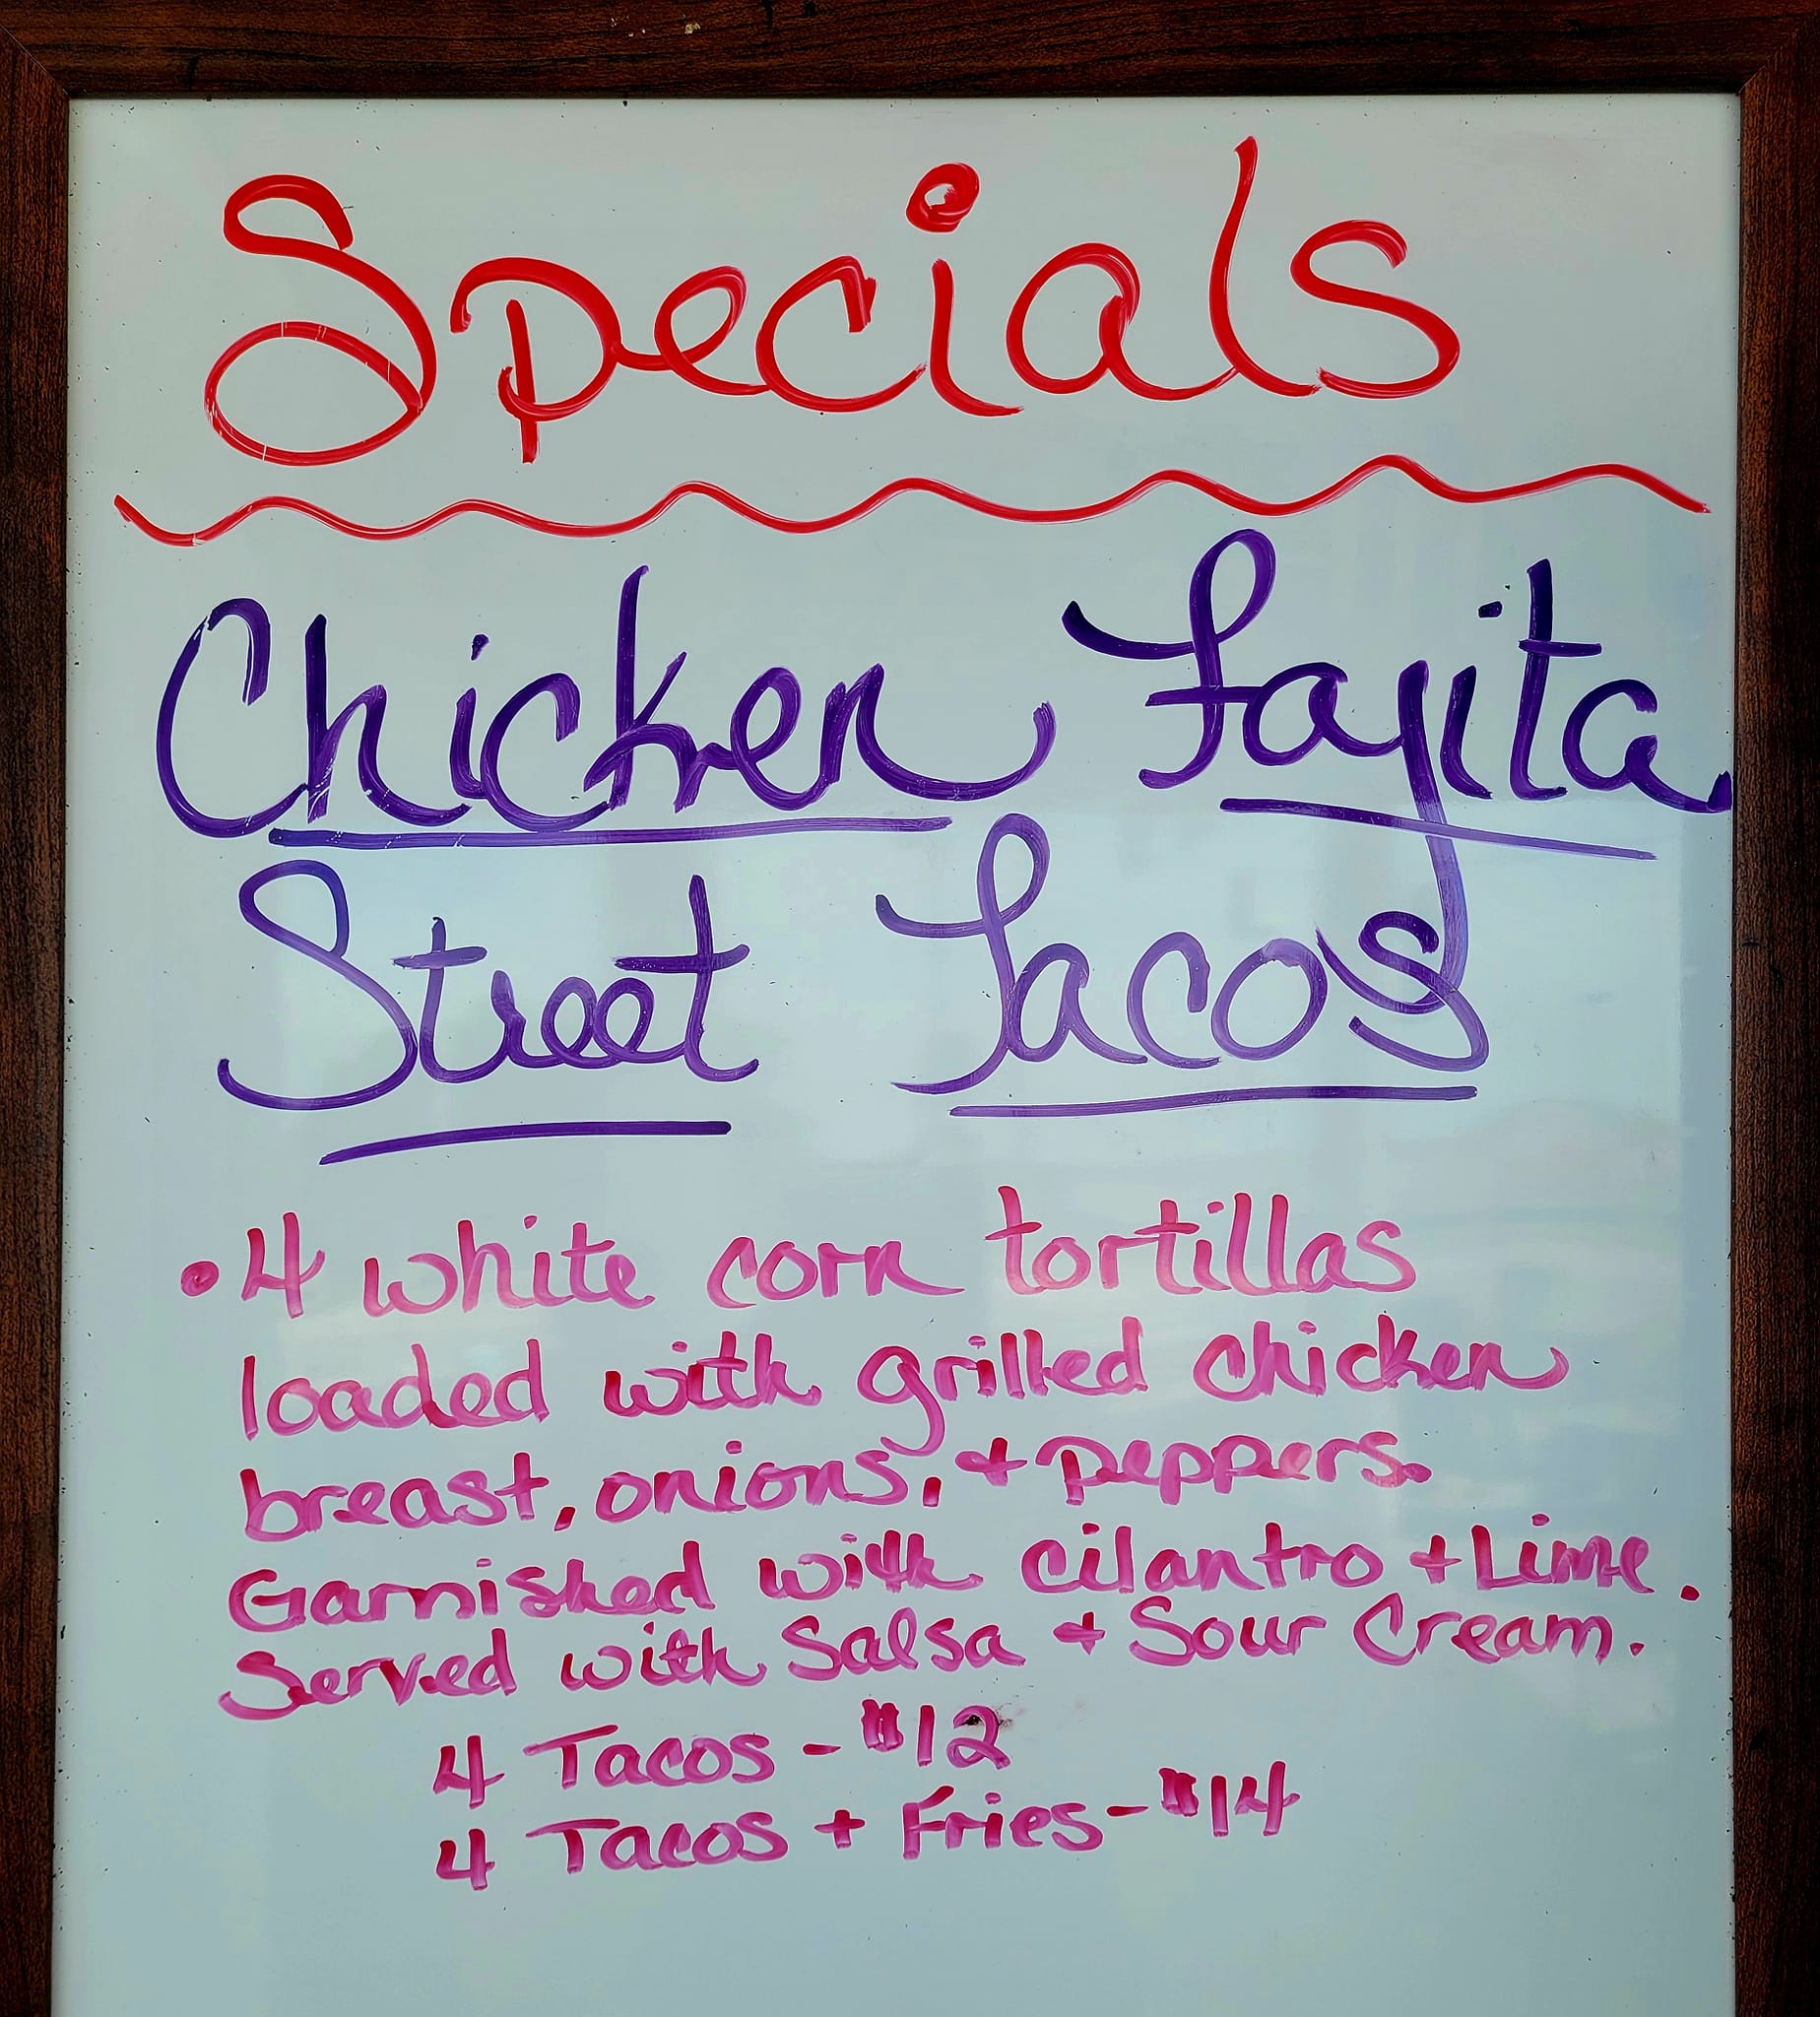 Specials
Chicken Fajita
Street Tacos
• 4 white corn tortillas
loaded with grilled chicken
breast, onions, + peppers.
Garnished with cilantro + Lime.
Served with Salsa + Sour Cream.
4 Tacos - $12
4 Tacos + Fries - $14